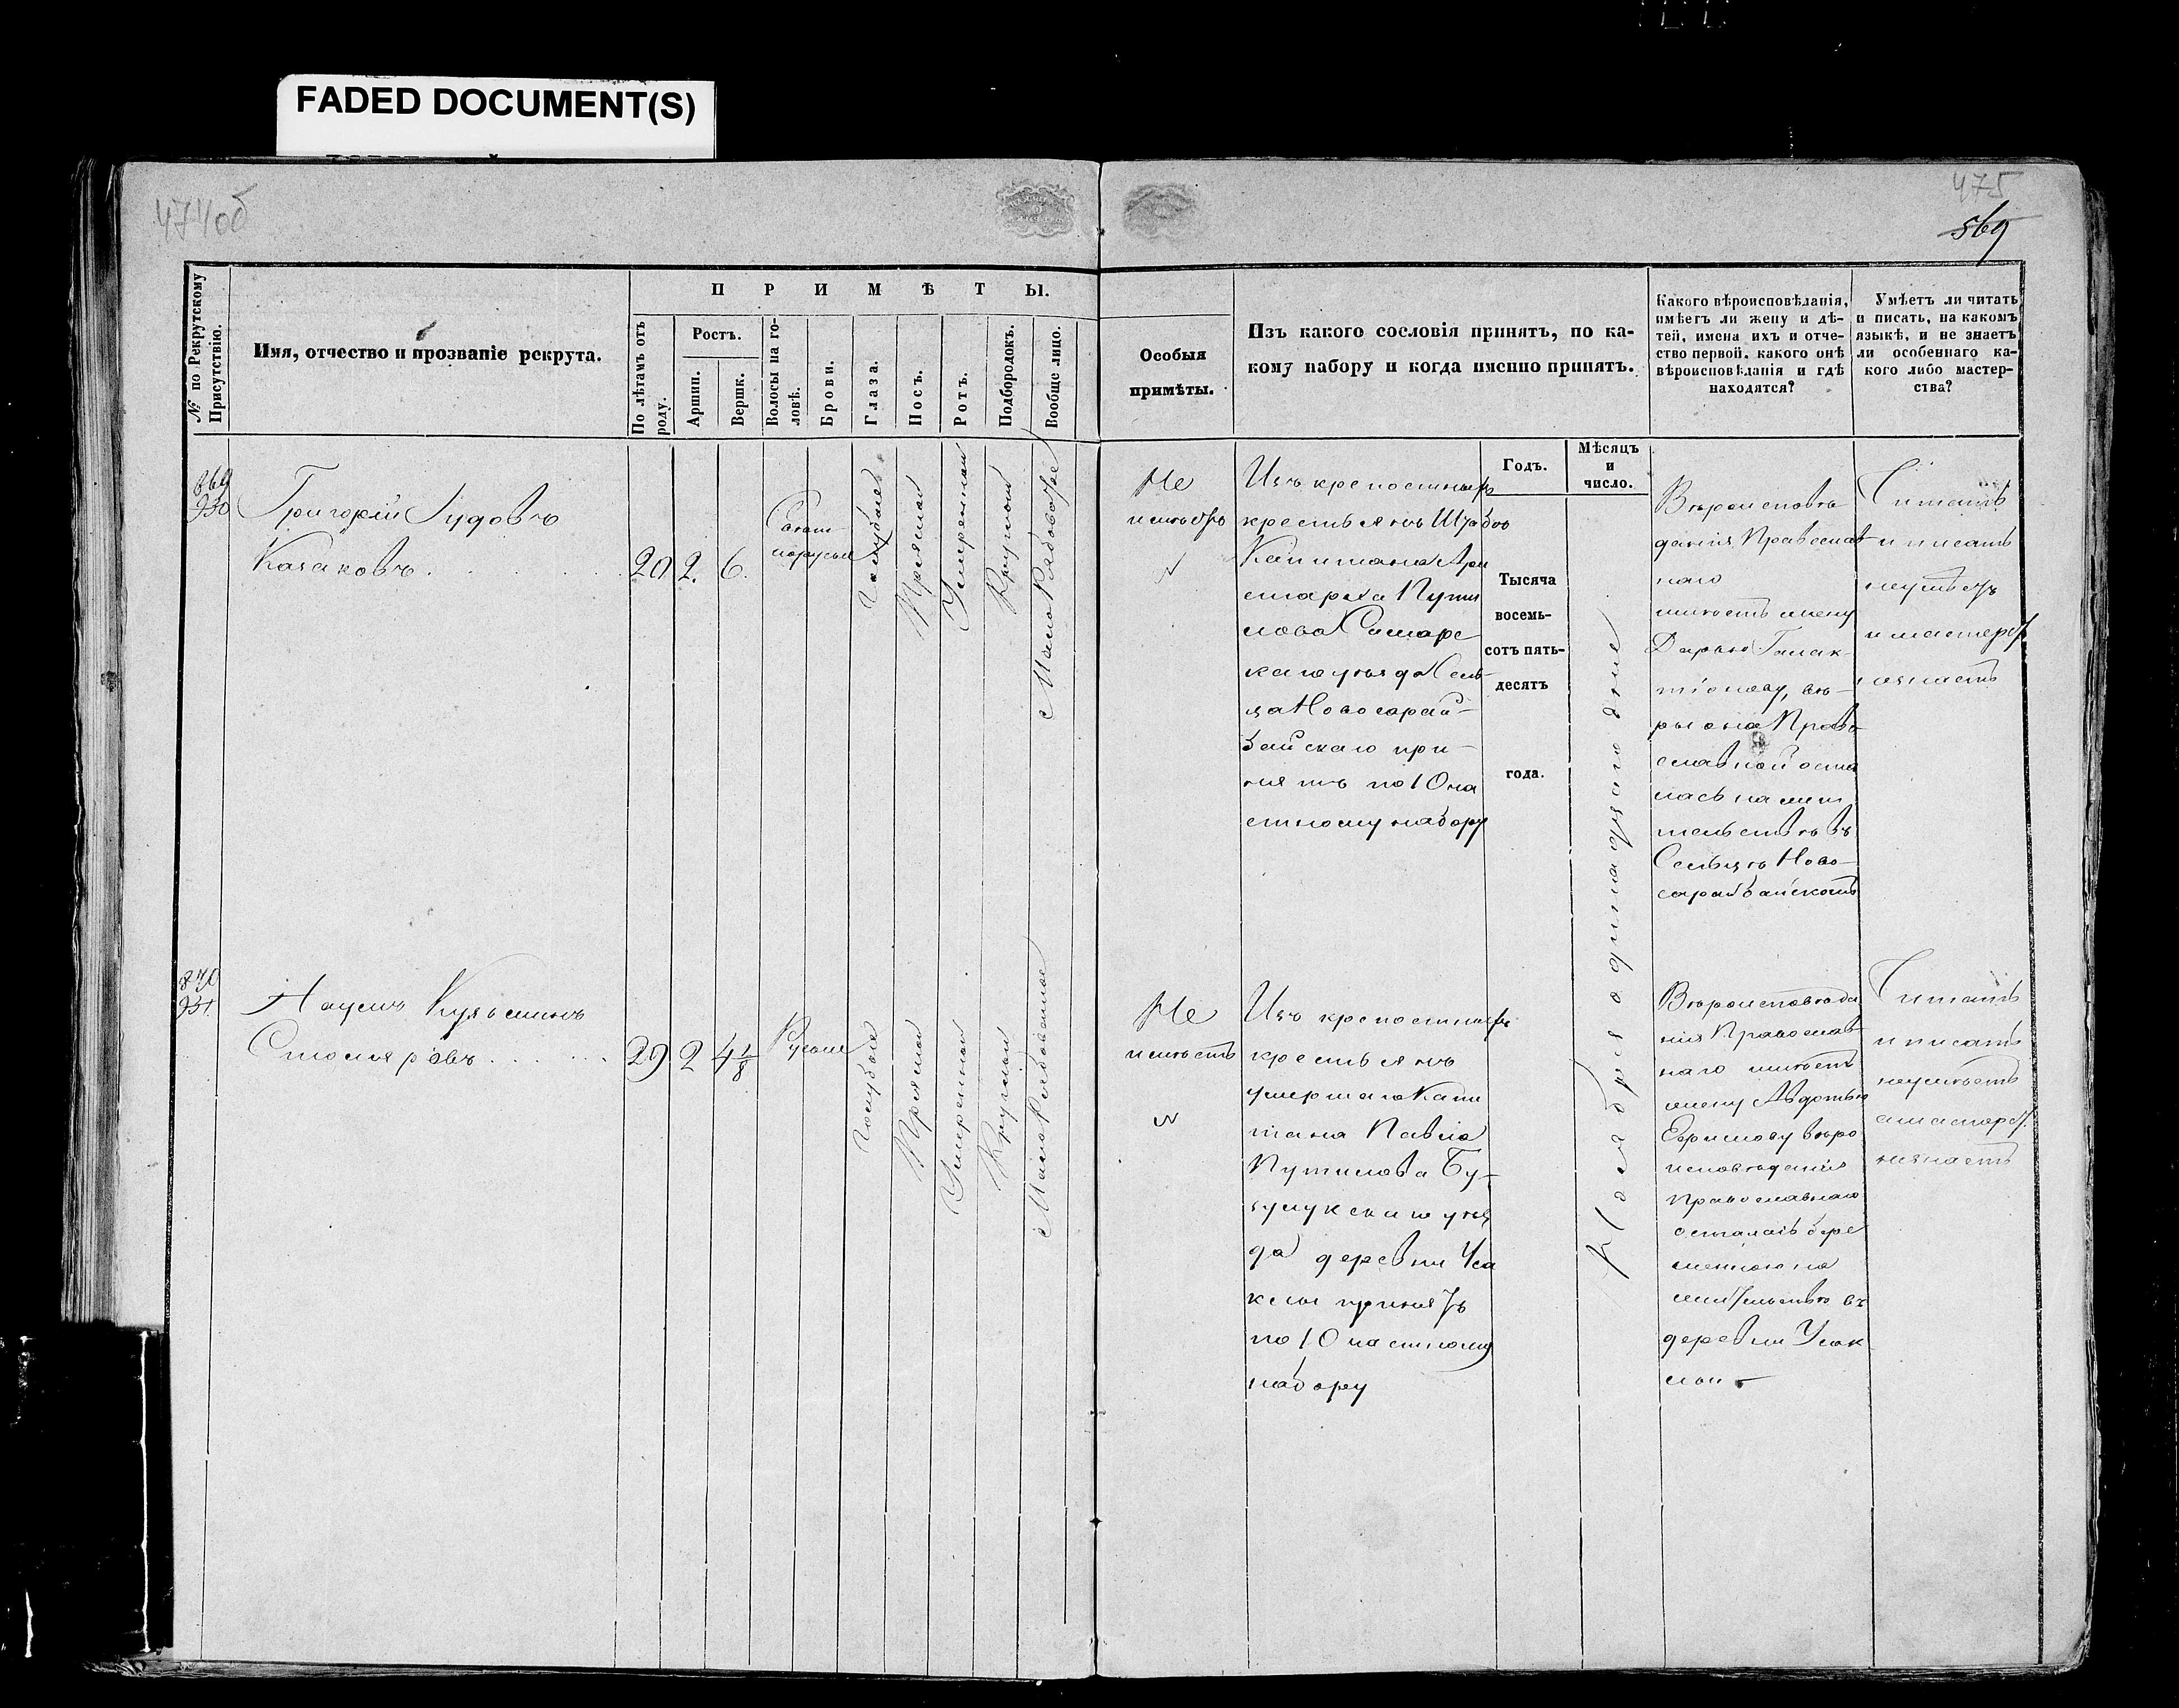 FADED DOCUMENT(S)
474об
475
569
№ по Рекрутскому Присутствію.
Имя, отчество и прозваніе рекрута.
ПРИМѢТЫ.
По лѣтамъ отъ роду.
Ростъ.
Аршин.
Вершк.
Волосы на головѣ.
Брови.
Глаза.
Носъ.
Ротъ.
Подбородокъ.
Вообще лицо.
Особыя
примѣты.
Изъ какого сословія принятъ, по ка-
кому набору и когда именно принятъ.
Какого вѣроисповѣданія,
имѣетъ ли жену и дѣ-
тей, имена ихъ и отче-
ство первой, какого онѣ
вѣроисповѣданія и гдѣ
находятся?
Умѣетъ ли читать
и писать, на какомъ
языкѣ, и не знаетъ
ли особеннаго ка-
кого либо мастер-
ства?
Годъ.
Мѣсяцъ
и
число.
869
930
Григорій Іудовъ
Казаковъ
20
2.
6.
Голубые
Прямой
Умеренной
Круглой
Малорябоватое
Не
имѣетъ
Изъ крепостныхъ
крестьянъ Штабсъ
Капитана Ари
старха Пути
лова Самарс
каго уѣзда Сель
ца Новосарай
байскаго при
нятъ по 10 ча
стному набору
Тысяча
восемь-
сотъ пять-
десятъ
года.
Ноября одинадцатого дня
Вѣроисповѣ
данія Православ
наго
имѣетъ жену
Дарью Галак
тіонову, вѣ
ры она Право
славной оста
лась на жит
тельствѣ въ
Сельцѣ Ново
сарайбайскомъ
Читать
и писать
неумѣетъ
и мастерст
незнаетъ
870
931
Наумъ Кузьминъ
Столяровъ
29
2
4 1/8
Русые
Голубые
Прямой
Умеренной
Круглой
Малорябоватое
Не
имѣетъ
Изъ крепостныхъ
крестьянъ
умершаго Капи
тана Павла
Путилова Бу-
зулукскаго уѣз
да деревни Уса
клы принятъ
по 10 частному
набору
Вѣроисповѣда
нія Православ
наго имѣетъ
жену Авдотью
Ефимову вѣро
исповѣданія
православнаго
осталась бере
менною на
жительствѣ въ
деревни Усак
лы
Читать
и писать
неумѣетъ
а мастерст.
незнаетъ